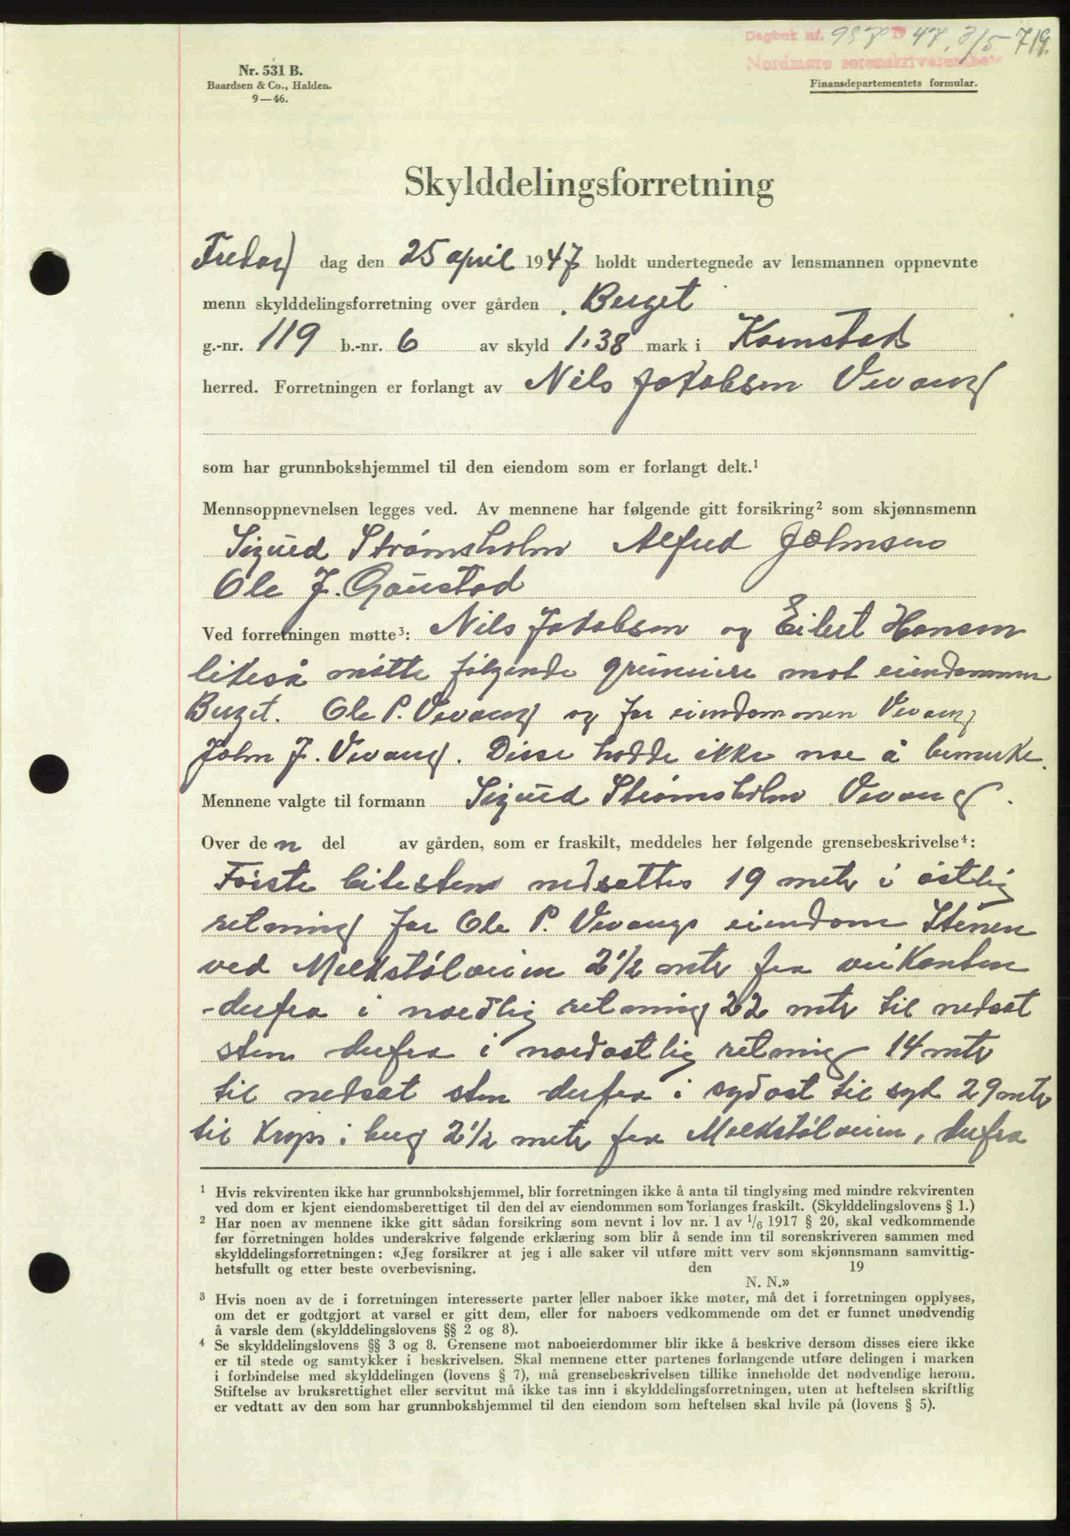 Dagbok nr. 987 1947, 3/5 719.
Nordmøre sorenskriverembete
Nr. 531 B.
Baardsen & Co., Halden.
9—46.
Finansdepartementets formular.
Skylddelingsforretning
Fredag dag den 25 april 1947 holdt undertegnede av lensmannen oppnevnte
menn skylddelingsforretning over gården Berget
g.-nr. 119 b.-nr. 6 av skyld 1.38 mark i Kornstad
herred. Forretningen er forlangt av Nils Jakobsen Vevang
som har grunnbokshjemmel til den eiendom som er forlangt delt.¹
Mennsoppnevnelsen legges ved. Av mennene har følgende gitt forsikring² som skjønnsmenn
Sigurd Strømsholm Alfred Johnsen
Ole J. Gaustad
Ved forretningen møtte³: Nils Jakobsen og Eilert Hansen
likeså møtte følgende grunneiere mot eiendommen
Berget. Ole P. Vevang og for eiendommen Vevang
John J. Vevang. Disse hadde ikke noe å bemerke.
Mennene valgte til formann Sigurd Strømsholm Vevang.
Over den del av gården, som er fraskilt, meddeles her følgende grensebeskrivelse⁴:
Første bitesten nedsattes 19 metr i østlig
retning for Ole P. Vevangs eiendom Stenen
ved Melkstølveien 2½ mtr fra veikanten
- derfra i nordlig retning 22 mtr til nedsat
sten derfra i nordøstlig retning 14 mtr
til nedsat sten derfra i sydost til syd 29 mtr
til kryss i berg 2½ metr fra Melkstølveien, derfra
¹ Hvis rekvirenten ikke har grunnbokshjemmel, blir forretningen ikke å anta til tinglysing med mindre rekvirenten
ved dom er kjent eiendomsberettiget til den del av eiendommen som forlanges fraskilt. (Skylddelingslovens § 1.)
² Har noen av mennene ikke gitt sådan forsikring som nevnt i lov nr. 1 av 1/6 1917 § 20, skal vedkommende
før forretningen holdes underskrive følgende erklæring som blir å sende inn til sorenskriveren sammen med
skylddelingsforretningen: «Jeg forsikrer at jeg i alle saker vil utføre mitt verv som skjønnsmann samvittig-
hetsfullt og etter beste overbevisning. den 19
N. N.»
³ Hvis noen av de i forretningen interesserte parter eller naboer ikke møter, må det i forretningen opplyses,
om det er godtgjort at varsel er gitt dem, eller for naboers vedkommende om det er funnet unødvendig
å varsle dem (skylddelingslovens §§ 2 og 8).
⁴ Se skylddelingslovens §§ 3 og 8. Grensene mot naboeierdommer blir ikke å beskrive dersom disses eiere ikke
er til stede og samtykker i beskrivelsen. Skal mennene etter partenes forlangende utføre delingen i marken
i forbindelse med skylddelingen (lovens § 7), må grensebeskrivelsen tillike inneholde det nødvendige herom.
Stiftelse av bruksrettighet eller servitut må ikke tas inn i skylddelingsforretningen, uten at heftelsen skriftlig
er vedtatt av den som har grunnbokshjemmel til den eiendom som heftelsen skal hvile på (lovens § 5).